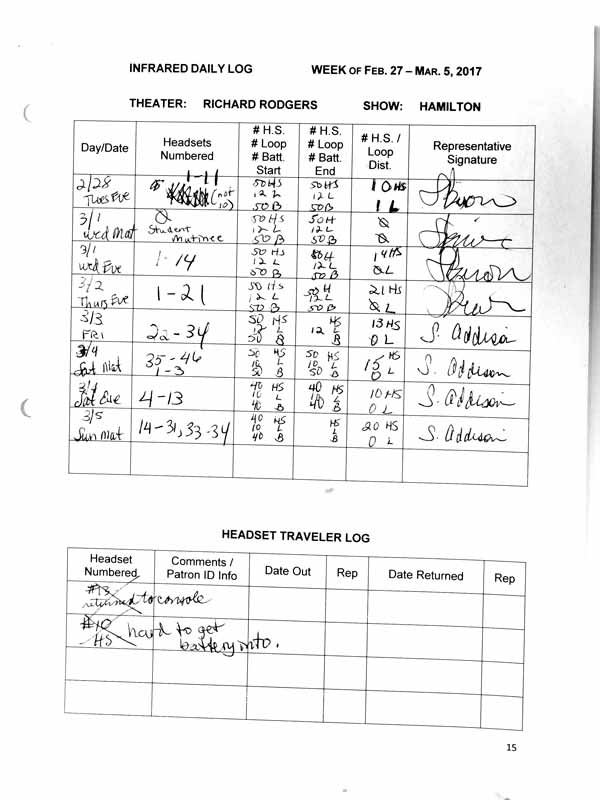 INFRARED DAILY LOG WEEK OF FEB. 27 – MAR. 5, 2017
THEATER: RICHARD RODGERS SHOW: HAMILTON
Day/Date Headsets Numbered # H.S. # Loop # Batt. Start # H.S. # Loop # Batt. End # H.S. / Loop Dist. Representative Signature
2/28 Tues Eve 1-11 (not 10) 50 HS 12 L 50 B 50 HS 12 L 50 B 10 HS 1 L
3/1 Wed Mat Ø Student Matinee 50 HS 12 L 50 B 50 H 12 L 50 B Ø Ø
3/1 Wed Eve 1-14 50 HS 12 L 50 B 50 H 12 L 50 B 14 HS Ø L
3/2 Thurs Eve 1-21 50 HS 12 L 50 B 50 H 12 L 50 B 21 HS Ø L
3/3 FRI 22-34 50 HS 12 L 50 B HS 12 L B 13 HS 0 L S. Addison
3/4 Sat Mat 35-46 1-3 50 HS 10 L 50 B 50 HS 10 L 50 B 15 HS 0 L S. Addison
3/4 Sat Eve 4-13 40 HS 10 L 40 B 40 HS 10 L 40 B 10 HS 0 L S. Addison
3/5 Sun Mat 14-31, 33-34 40 HS 10 L 40 B HS L B 20 HS 0 L S. Addison
HEADSET TRAVELER LOG
Headset Numbered Comments / Patron ID Info Date Out Rep Date Returned Rep
#13 returned to console
#10 HS hard to get battery into.
15